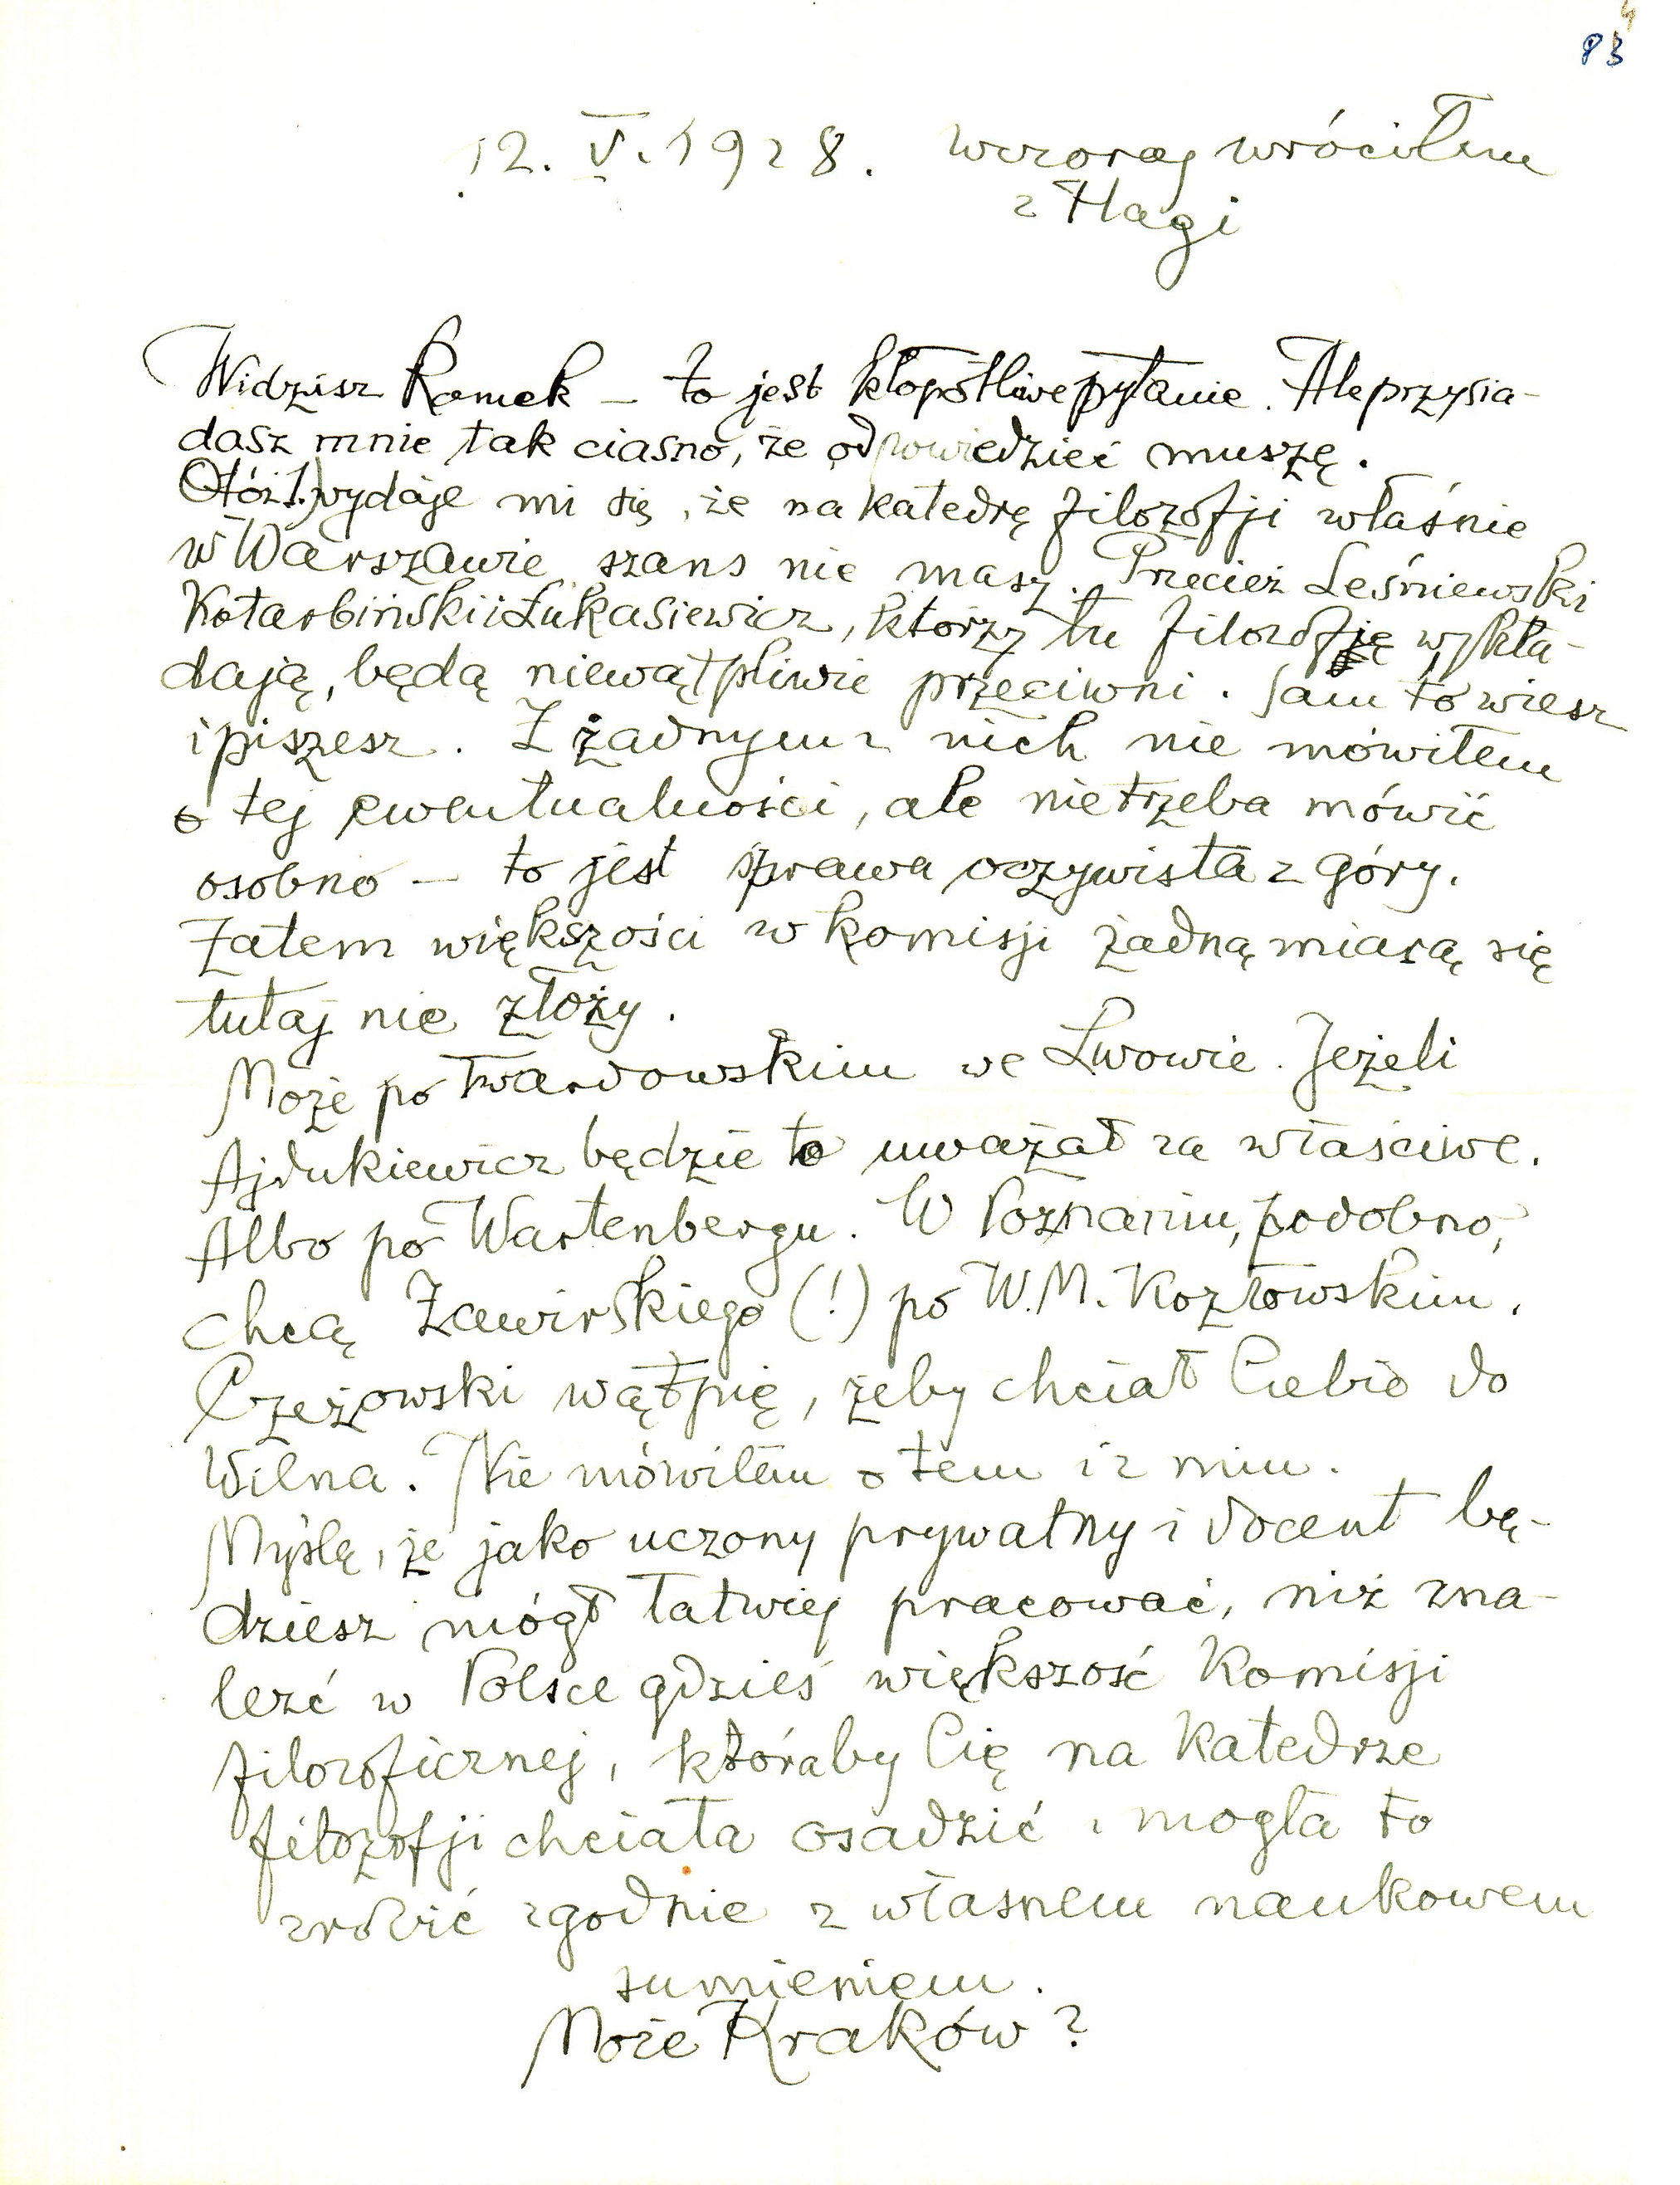 83
12. V. 1928. wczoraj wróciłem
z Hagi
Widzisz Romek – to jest kłopotliwe pytanie. Ale przysia-
dasz mnie tak ciasno, że odpowiedzieć muszę.
Otóż 1) wydaje mi się, że na katedrę filozofji właśnie
w Warszawie szans nie masz. Przecież Leśniewski
Kotarbiński i Łukasiewicz, którzy tu filozofję wykła-
dają, będą niewątpliwie przeciwni. Sam to wiesz
i piszesz. Z żadnym z nich nie mówiłem
o tej ewentualności, ale nie trzeba mówić
osobno – to jest sprawa oczywista z góry.
Zatem większości w komisji żadną miarą się
tutaj nie złoży.
Może po Twardowskim we Lwowie. Jeżeli
Ajdukiewicz będzie to uważał za właściwe.
Albo po Wartenbergu. W Poznaniu, podobno,
chcą Zawirskiego (!) po W. M. Kozłowskim.
Czeżowski wątpię, żeby chciał Ciebie do
Wilna. Nie mówiłem o tem i z nim.
Myślę, że jako uczony prywatny i docent bę-
dziesz mógł łatwiej pracować, niż zna-
leźć w Polsce gdzieś większość Komisji
filozoficznej, któraby Cię na Katedrze
filozofji chciała osadzić i mogła to
zrobić zgodnie z własnem naukowem
sumieniem.
Może Kraków?